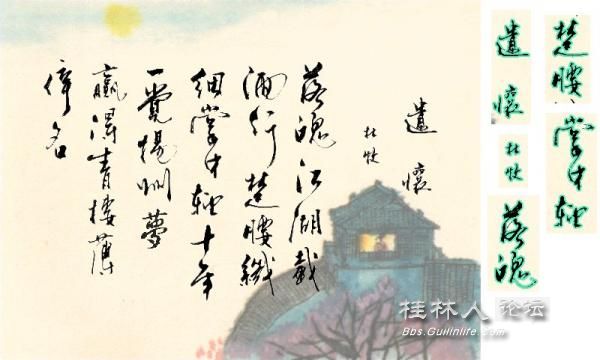 遺懷
杜牧
落魄江湖載
酒行楚腰纖
細掌中輕十年
一覺揚州夢
贏得青樓薄
倖名
楚腰
掌中輕
遺懷
杜牧
落魄
桂林人论坛
Bbs.Guilinlife.com